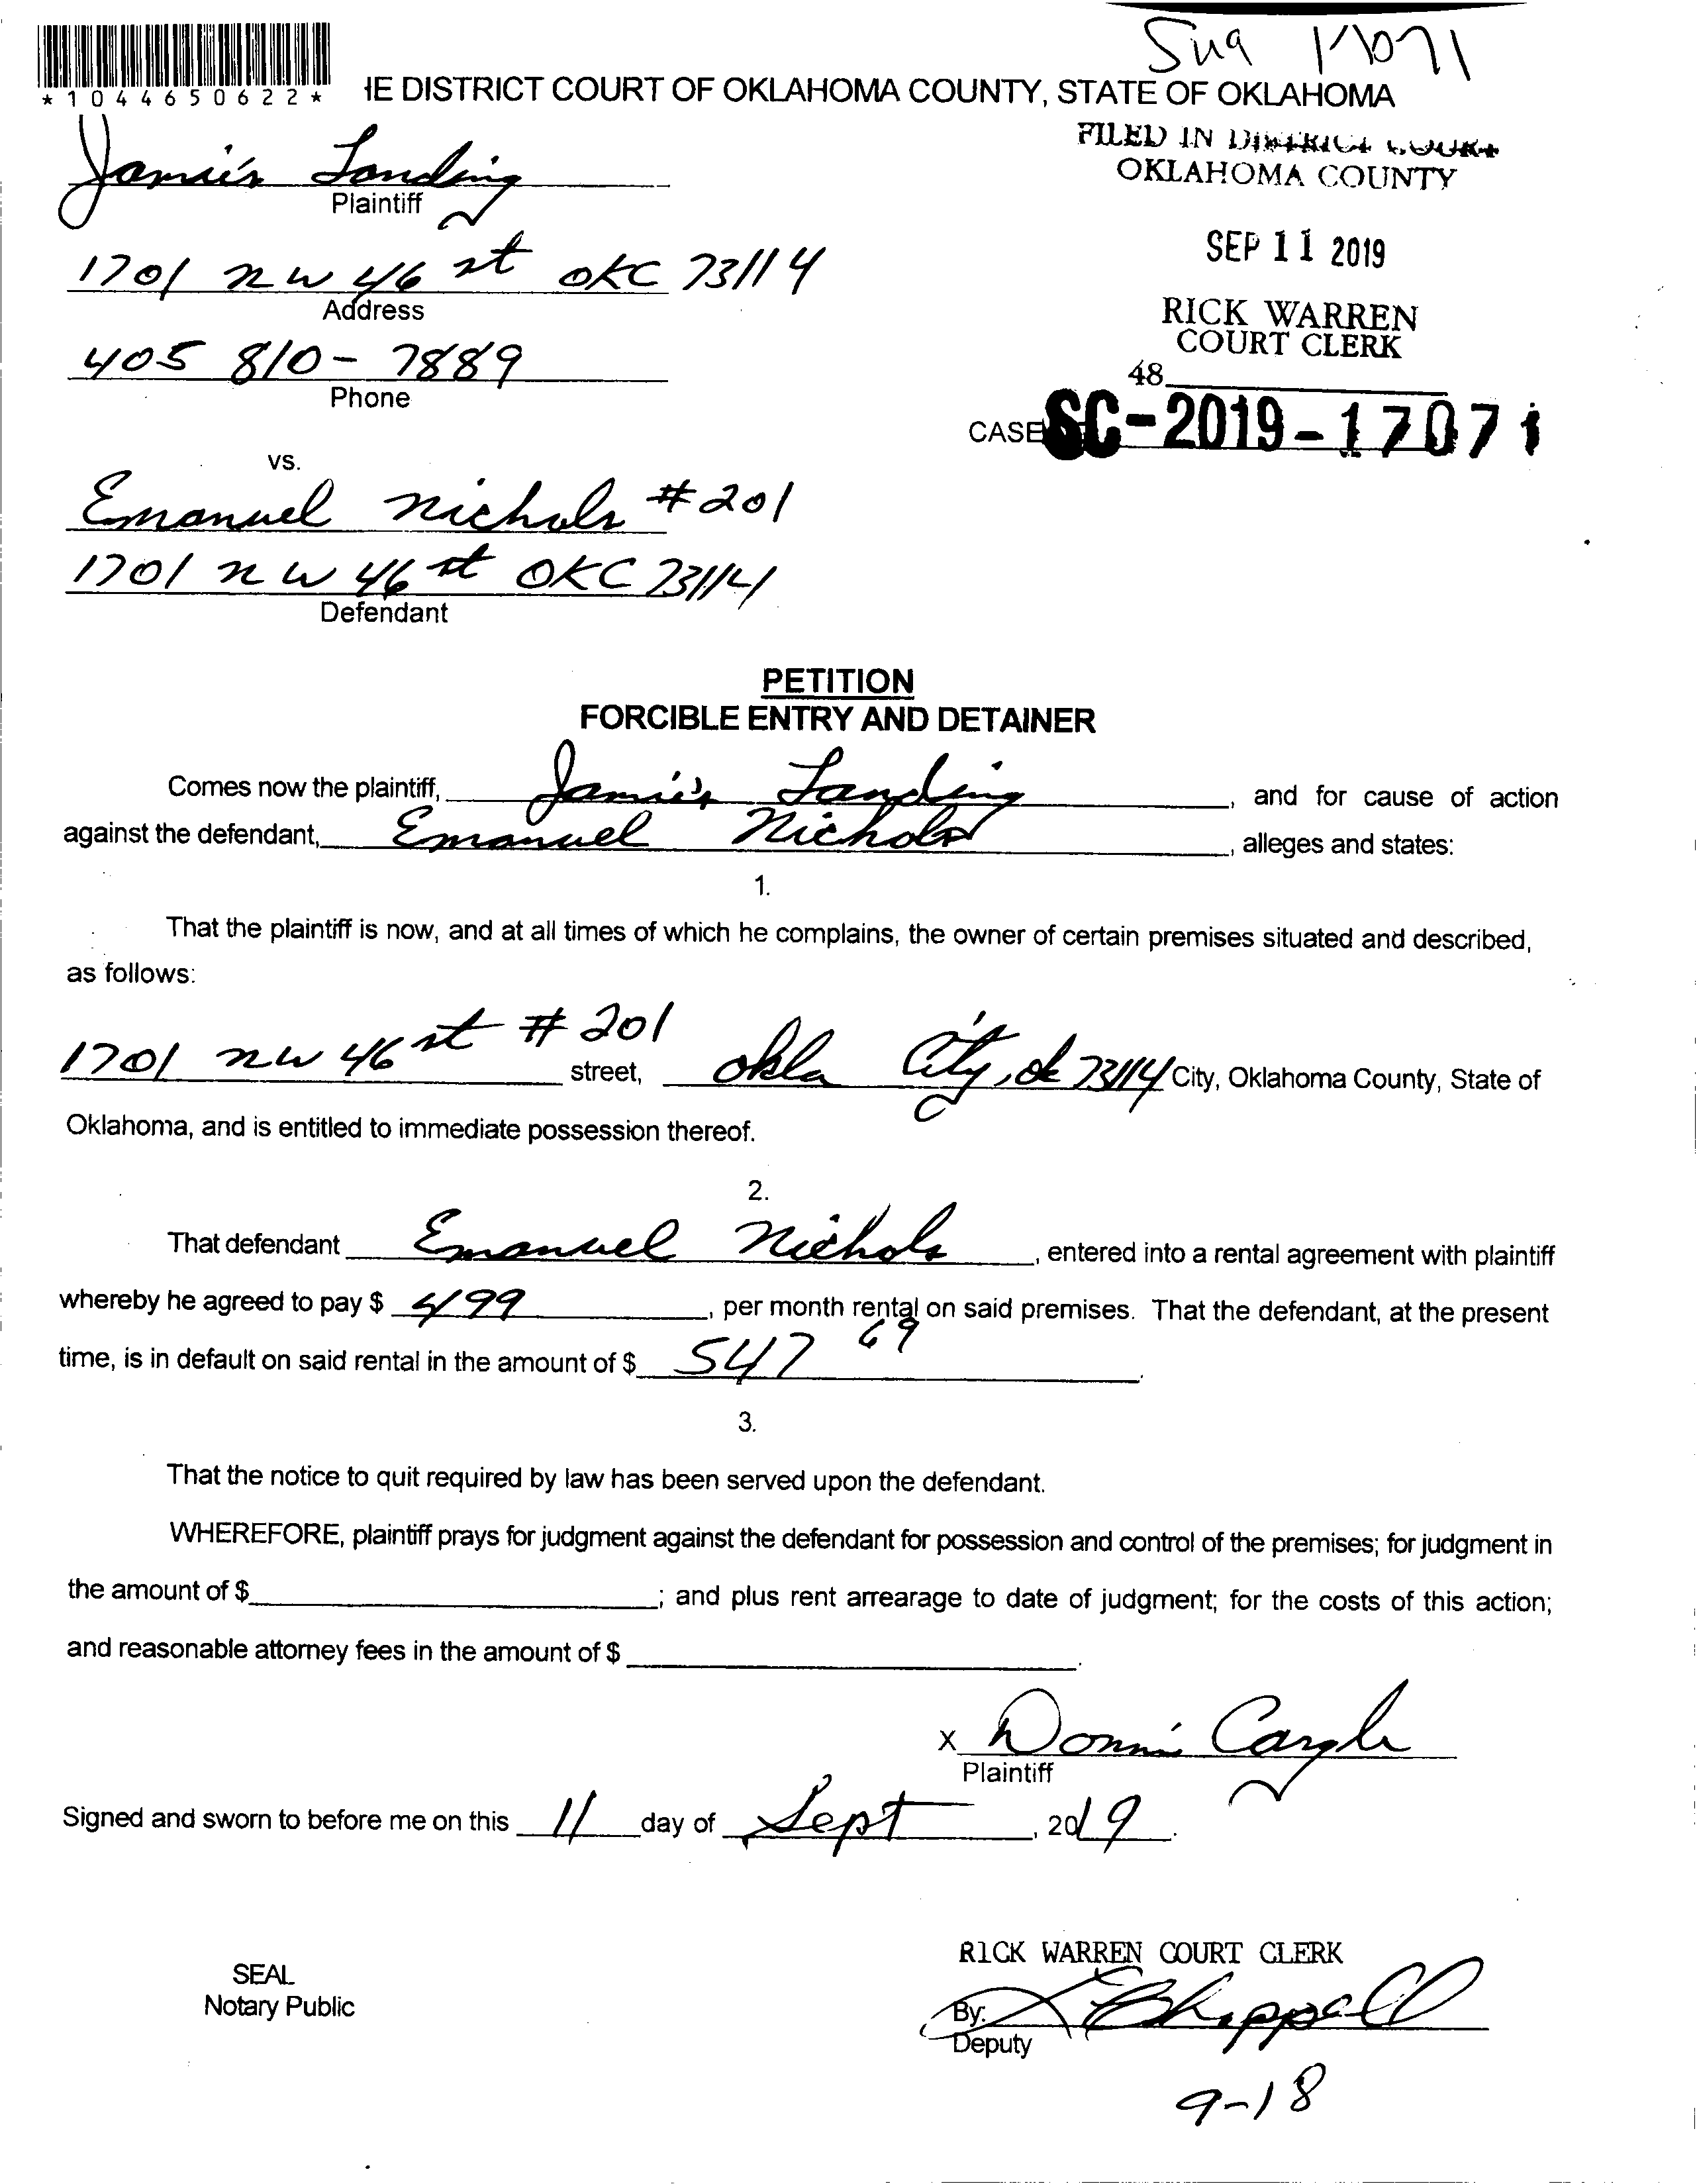 Sng 17071
*1044650622*
IE DISTRICT COURT OF OKLAHOMA COUNTY, STATE OF OKLAHOMA
FILED IN DISTRICT COURT
OKLAHOMA COUNTY
Jamie's Landing
Plaintiff
SEP 11 2019
1701 nw 46 st OKC 73114
Address
RICK WARREN
COURT CLERK
405 810-7889
Phone
48
CASE SC-2019-17071
vs.
Emanuel Nichols #201
1701 nw 46 st OKC 73114
Defendant
PETITION
FORCIBLE ENTRY AND DETAINER
Comes now the plaintiff, Jamie's Landing, and for cause of action
against the defendant, Emanuel Nichols, alleges and states:
1.
That the plaintiff is now, and at all times of which he complains, the owner of certain premises situated and described,
as follows:
1701 nw 46 st #201 street, Okla City, ok 73114 City, Oklahoma County, State of
Oklahoma, and is entitled to immediate possession thereof.
2.
That defendant Emanuel Nichols, entered into a rental agreement with plaintiff
whereby he agreed to pay $ 499, per month rental on said premises. That the defendant, at the present
time, is in default on said rental in the amount of $ 547 69.
3.
That the notice to quit required by law has been served upon the defendant.
WHEREFORE, plaintiff prays for judgment against the defendant for possession and control of the premises; for judgment in
the amount of $; and plus rent arrearage to date of judgment; for the costs of this action;
and reasonable attorney fees in the amount of $.
X Donni Cargle
Plaintiff
Signed and sworn to before me on this 11 day of Sept, 2019.
RICK WARREN COURT CLERK
SEAL
Notary Public
By: Chappell
Deputy
9-18